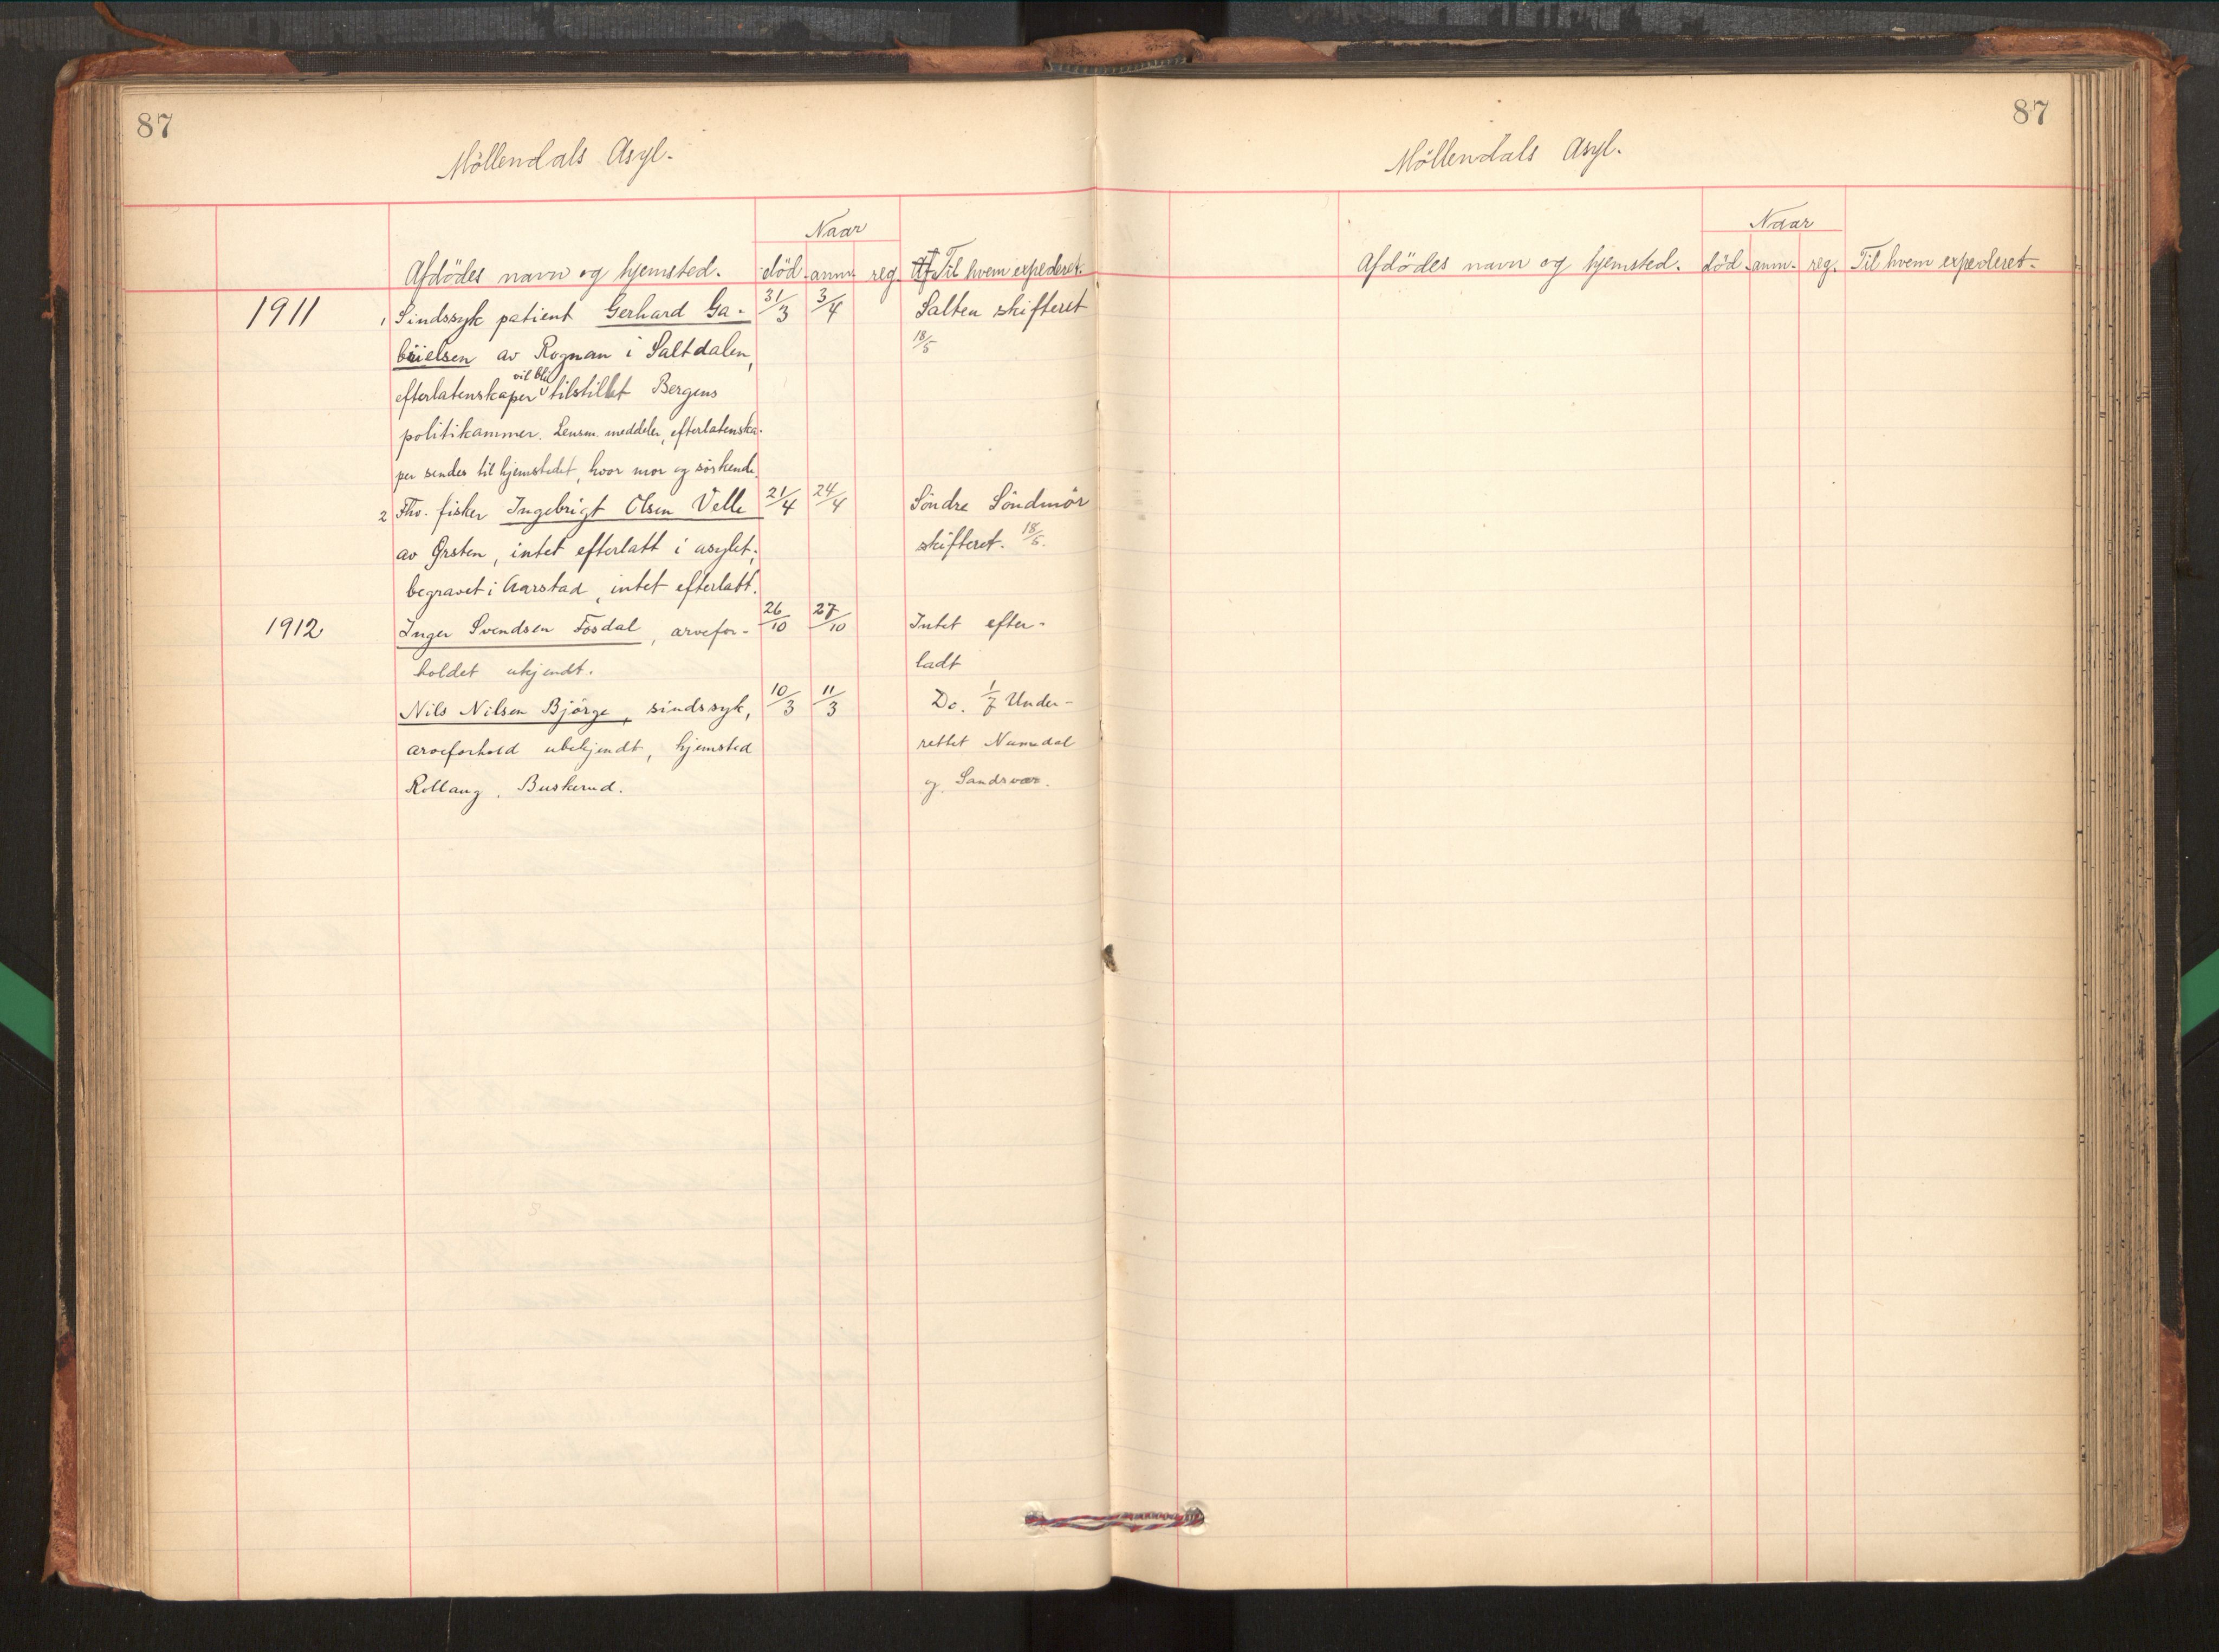 87
Möllendals Asyl.
Naar
Afdödes navn og hjemsted. död. anm. reg. Af Til hvem expederet.
1911 1 Sindssyk patient Gerhard Ga- 31/3 3/4 Salten skifteret
briielsen av Rognan i Saltdalen, 18/5
vil bli
efterlatenskaper tilstillet Bergens
politikammer. Lensm. meddeler, efterlatenska-
per sendes til hjemstedet, hvor mor og söskende.
2 Fhv. fisker Ingebrigt Olsen Velle 21/4 24/4 Söndre Söndmör
av Örsten, intet efterlatt i asylet; skifteret. 18/5.
begravet i Aarstad, intet efterlatt.
1912 Inger Svendsen Fosdal, arvefor- 26/10 27/10 Intet efter-
holdet ukjendt. ladt
Nils Nilsen Björge, sindssyk, 10/3 11/3 Do. 1/7 Under-
arveforhold ubekjendt, hjemsted rettet Numedal
Rollaug, Buskerud. og Sandsvær.
87
Möllendals Asyl.
Naar
Afdödes navn og hjemsted. död. anm. reg. Til hvem expederet.